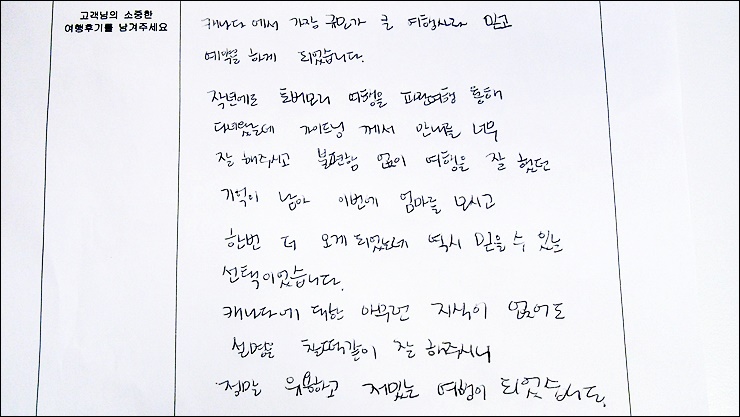 고객님의 소중한
여행후기를 남겨주세요
캐나다 에서 가장 규모가 큰 여행사라 믿고
예약을 하게 되었습니다.
작년에도 토버모리 여행을 파란여행 통해
다녀왔는데 가이드님 께서 안내를 너무
잘 해주시고 불편함 없이 여행을 잘 했던
기억이 남아 이번에 엄마를 모시고
한번 더 오게 되었는데 역시 믿을 수 있는
선택이었습니다.
캐나다에 대한 아무런 지식이 없어도
설명을 찰떡같이 잘 해주시니
정말 유용하고 재밌는 여행이 되었습니다.